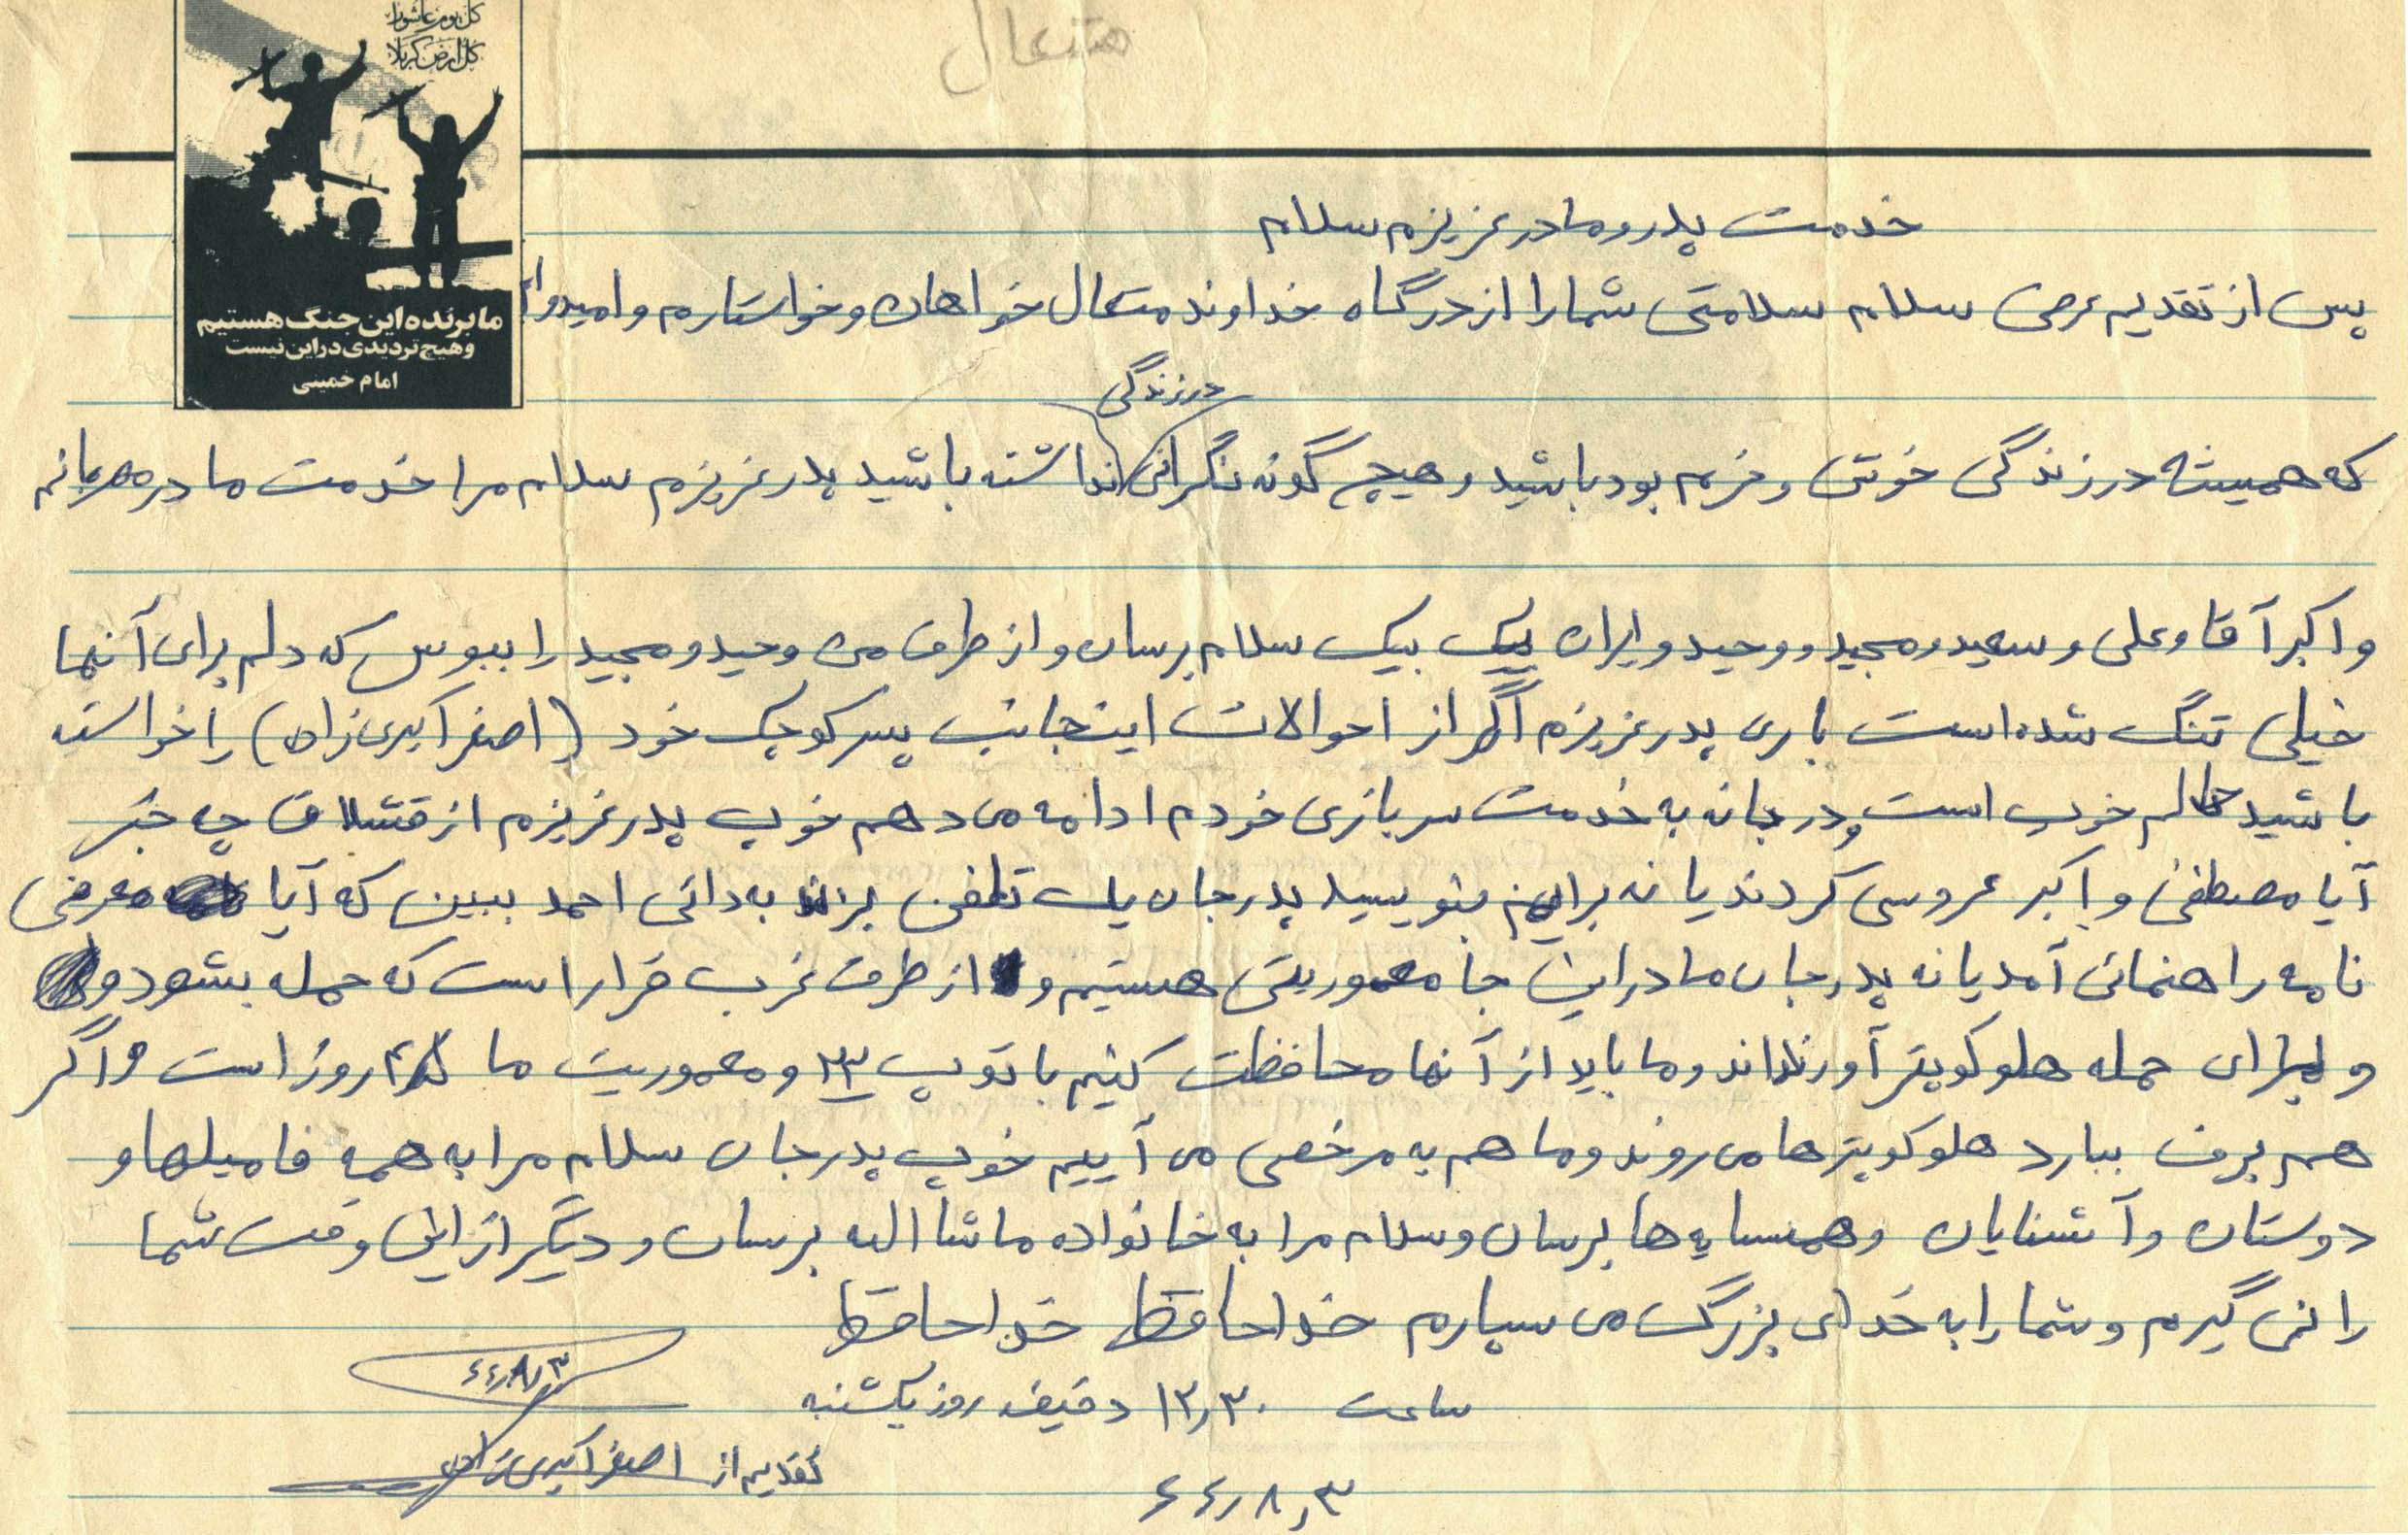 متعال
کل یوم عاشورا
کل ارض کربلا
ما برنده این جنگ هستیم
و هیچ تردیدی در این نیست
امام خمینی
خدمت پدر و مادر عزیزم سلام
پس از تقدیم عرض سلام سلامتی شما را از درگاه خداوند متعال خواهان و خواستارم و امیدوار
در زندگی
که همیشه در زندگی خوش و خرم بود باشید و هیچ گونه نگرانی نداشته باشید پدر عزیزم سلام مرا خدمت مادر مهربانم
و اکبر آقا و علی و سعید و مجید و وحید و ایران بیک بیک سلام برسان و از طرف من وحید و مجید را ببوس که دلم برای آنها
خیلی تنگ شده است باری پدر عزیزم اگر از احوالات اینجانب پسر کوچک خود (اصغر اکبری زاده) را خواسته
باشید حالم خوب است و در بانه به خدمت سربازی خودم ادامه می دهم خوب پدر عزیزم از قشلاق چه خبر
آیا مصطفی و اکبر عروسی کردند یا نه برایم بنویسید پدر جان یک تلفن بزند به دائی احمد ببین که آیا معرفی
نامه راهنمائی آمد یا نه پدر جان ما در این جا معموریتی هستیم و از طرف غرب قرار است که حمله بشود و
و برای حمله هلوکوپتر آورند اند و ما باید از آنها محافظت کنیم با توپ ۲۳ و معموریت ما روز است و اگر
هم برف ببارد هلوکوپترها می روند و ما هم به مرخصی می آییم خوب پدر جان سلام مرا به همه فامیلها و
دوستان و آشنایان و همسایه ها برسان و سلام مرا به خانواده ماشااله برسان و دیگر از این وقت شما
را نمی گیرم و شما را به خدای بزرگ می سپارم خداحافظ خداحافظ
ساعت ۱۲٫۳۰ دقیقه روز یکشنبه
۶۴٫۸٫۳
تقدیم از اصغر اکبری زاده
۶۴٫۸٫۳